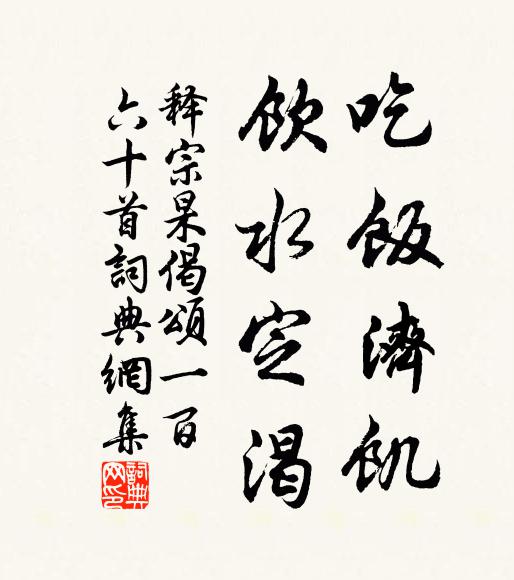 吃飯濟飢
飲水定渴
释宗杲偈頌一百
六十首詞典網集
詞典網印